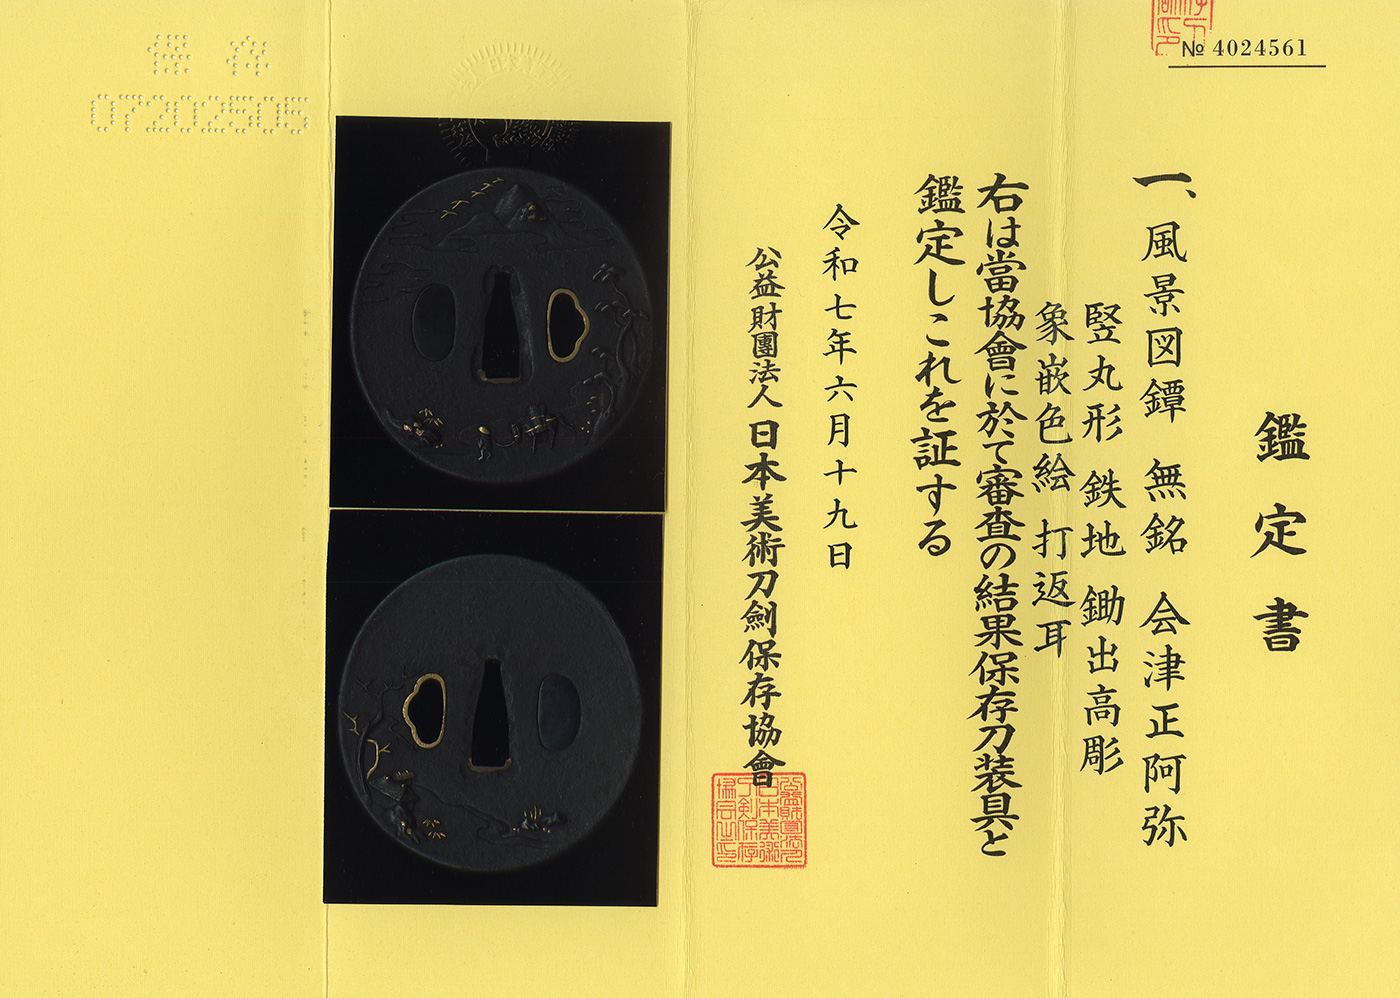 № 4024561
鑑定書
一、風景図鐔 無銘 会津正阿弥
竪丸形 鉄地 鋤出高彫
象嵌色絵 打返耳
右は當協會に於て審査の結果保存刀装具と
鑑定しこれを証する
令和七年六月十九日
公益財團法人日本美術刀劍保存協會
保存
07202505